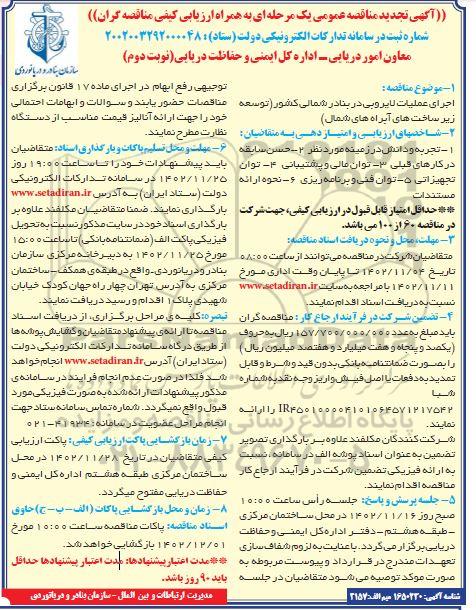 ((آگهی تجدید مناقصه عمومی یک مرحله ای به همراه ارزیابی کیفی مناقصه گران))
شماره ثبت در سامانه تدارکات الکترونیکی دولت (ستاد): ۲۰۰۲۰۰۳۲۹۲۰۰۰۰۴۸
معاون امور دریایی ـ اداره کل ایمنی و حفاظت دریایی (نوبت دوم)
سازمان بنادر و دریانوردی
۱- موضوع مناقصه:
اجرای عملیات لایروبی در بنادر شمالی کشور (توسعه
زیر ساخت های آبراه های شمال)
۲- شاخصهای ارزیابی و امتیاز دهی به متقاضیان:
۱- تجربه و دانش در زمینه مورد نظر ۲- حسن سابقه
در کارهای قبلی ۳- توان مالی و پشتیبانی ۴- توان
تجهیزاتی ۵- توان فنی و برنامه ریزی ۶- نحوه ارائه
مستندات
**حداقل امتیاز قابل قبول در ارزیابی کیفی، جهت شرکت
در مناقصه ۶۰ از ۱۰۰ می باشد.
۳- مهلت، محل و نحوه دریافت اسناد مناقصه:
متقاضیان شرکت در مناقصه می توانند از ساعت ۰۸:۰۰
تاریخ ۱۴۰۲/۱۱/۰۴ تا پایان وقت اداری مورخ
۱۴۰۲/۱۱/۱۱ با مراجعه به سایت www.setadiran.ir
نسبت به دریافت اسناد اقدام نمایند.
۴- تضمین شرکت در فرآیند ارجاع کار: مناقصه گران
باید مبلغ به عدد ۱۵۷/۷۰۰/۰۰۰/۰۰۰ ریال به حروف
(یکصد و پنجاه و هفت میلیارد و هفتصد میلیون ریال)
را بصورت ضمانتنامه بانکی بدون قید و شرط و قابل
تمدید به دفعات یا اصل فیش واریز وجه نقد به شماره
شبا
IR۴۵۰۱۰۰۰۰۴۱۰۱۰۶۴۵۷۱۲۱۷۵۴۲ را ارائه
نمایند.
شرکت کنندگان مکلفند علاوه بر بارگذاری تصویر
تضمین به عنوان اسناد پوشه الف در سامانه، نسبت
به ارائه فیزیکی تضمین شرکت در فرآیند ارجاع کار
مناقصه اقدام نمایند.
۵- جلسه پرسش و پاسخ: جلسه رأس ساعت ۱۰:۰۰
صبح روز ۱۴۰۲/۱۱/۱۶ در محل ساختمان مرکزی
- طبقه هشتم - دفتر اداره کل ایمنی و حفاظت
دریایی برگزار می گردد. با عنایت به لزوم شفاف سازی
تعهدات مندرج در قرارداد و پیوست مربوطه به
صورت موکد توصیه می شود متقاضیان در جلسه
توجیهی رفع ابهام در اجرای ماده ۱۷ قانون برگزاری
مناقصات حضور یابند و سوالات و ابهامات احتمالی
خود را جهت ارائه آنالیز قیمت مناسب از دستگاه
نظارت مطرح نمایند.
۶- مهلت و محل تسلیم پاکات و بارگذاری اسناد: متقاضیان
باید پیشنهادات خود را تا ساعت ۱۹:۰۰ روز
۱۴۰۲/۱۱/۲۵ در سامانه تدارکات الکترونیکی
دولت (ستاد ایران) به آدرس www.setadiran.ir
بارگذاری نمایند. ضمنا متقاضیان مکلفند علاوه بر
بارگذاری اسناد خود در سایت مذکور نسبت به تحویل
فیزیکی پاکت الف (ضمانتنامه بانکی) تا ساعت ۱۵:۰۰
مورخ ۱۴۰۲/۱۱/۲۵ به دبیرخانه مرکزی سازمان
بنادر و دریانوردی - واقع در طبقه ی همکف - ساختمان
مرکزی به آدرس تهران چهار راه جهان کودک خیابان
شهیدی پلاک ۱ اقدام و رسید دریافت نمایند.
تبصره: کلیه ی مراحل برگزاری، از دریافت اسناد
مناقصه تا ارائه ی پیشنهاد متقاضیان و گشایش پوشه ها
از طریق درگاه سامانه تدارکات الکترونیکی دولت
(ستاد ایران) آدرس www.setadiran.ir انجام خواهد
شد فلذا در صورت عدم انجام فرایند در سامانه ی
مذکور پیشنهادات ارائه شده به صورت فیزیکی مورد
قبول واقع نمیگردد. شماره تماس سامانه ستاد جهت
انجام مراحل عضویت در سامانه: ۴۱۹۳۴-۰۲۱
۷- زمان بازگشایی پاکت ارزیابی کیفی: پاکت ارزیابی
کیفی متقاضیان در تاریخ ۱۴۰۲/۱۱/۲۸ در محل
ساختمان مرکزی طبقه هشتم اداره کل ایمنی و
حفاظت دریایی مفتوح میگردد.
۸- زمان و محل بازگشایی پاکات (الف - ب - ج) حاوی
اسناد مناقصه: پاکات مناقصه ساعت ۱۰:۰۰ مورخ
۱۴۰۲/۱۲/۰۱ بازگشایی خواهد شد.
**مدت اعتبار پیشنهادها: مدت اعتبار پیشنهادها حداقل
باید ۹۰ روز باشد.
شناسه آگهی: ۱۶۵۰۲۳۰ میم الف: ۳۱۵۷
مدیریت ارتباطات و بین الملل - سازمان بنادر و دریانوردی